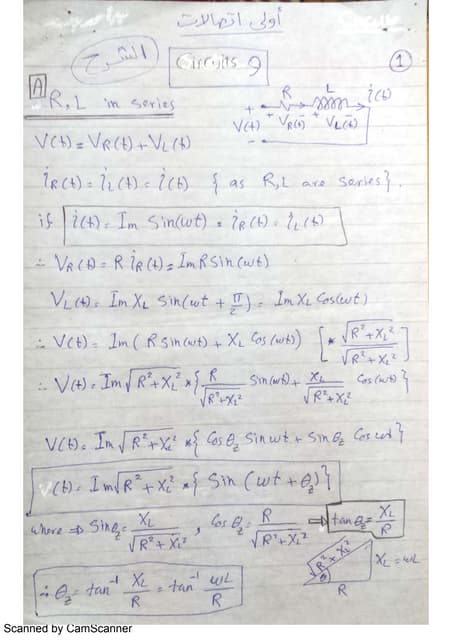 أولى اتصالات
الشرح
Circuits 9
1
A R, L in series
R L i(t)
+ + - + -
V(t) VR(t) VL(t)
-
V(t) = VR(t) + VL(t)
iR(t) = iL(t) = i(t) { as R,L are series}.
if i(t) = Im Sin(ωt) = iR(t) = iL(t)
∴ VR(t) = R iR(t) = Im R Sin(ωt)
VL(t) = Im XL Sin(ωt + π/2) = Im XL Cos(ωt)
∴ V(t) = Im (R Sin(ωt) + XL Cos(ωt)) [* √(R²+XL²) / √(R²+XL²)]
∴ V(t) = Im √(R²+XL²) * { R/√(R²+XL²) Sin(ωt) + XL/√(R²+XL²) Cos(ωt) }
V(t) = Im √(R²+XL²) * { Cos θz Sin ωt + Sin θz Cos ωt }
V(t) = Im √(R²+XL²) * { Sin (ωt + θz) }
where ⇒ Sin θz = XL/√(R²+XL²) , Cos θz = R/√(R²+XL²) ⇒ tan θz = XL/R
√(R²+XL²) XL = ωL
θ
R
∴ θz = tan⁻¹ XL/R = tan⁻¹ ωL/R
Scanned by CamScanner